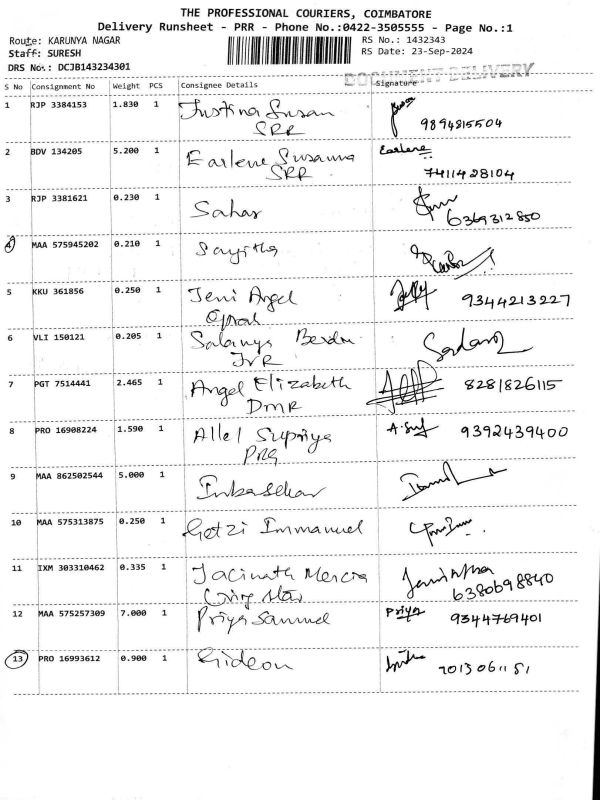 THE PROFESSIONAL COURIERS, COIMBATORE
Delivery Runsheet - PRR - Phone No.:0422-3505555 - Page No.:1
Route: KARUNYA NAGAR RS No.: 1432343
Staff: SURESH RS Date: 23-Sep-2024
DRS No.: DCJB143234301
DOCUMENT DELIVERY
S No Consignment No Weight PCS Consignee Details Signature
1 RJP 3384153 1.830 1 Justina Susan
SRR 9894815504
2 BDV 134205 5.200 1 Earlene Susanna Earlene
SRR 7411428104
3 RJP 3381621 0.230 1 Sahar
6369312850
4 MAA 575945202 0.210 1 Sayitha
5 KKU 361856 0.250 1 Jeni Angel 9344213227
6 VLI 150121 0.205 1
JVR
7 PGT 7514441 2.465 1 Angel Elizabeth 8281826115
DMR
8 PRO 16908224 1.590 1 Allel Supriya 9392439400
PRG
9 MAA 862502544 5.000 1 Inbasekar
10 MAA 575313875 0.250 1 Getzi Immanuel
11 IXM 303310462 0.335 1 Jacinath Mercia
6380698840
12 MAA 575257309 7.000 1 Priya Sammuel Priya 9344769401
13 PRO 16993612 0.900 1 Gideon 7013061151